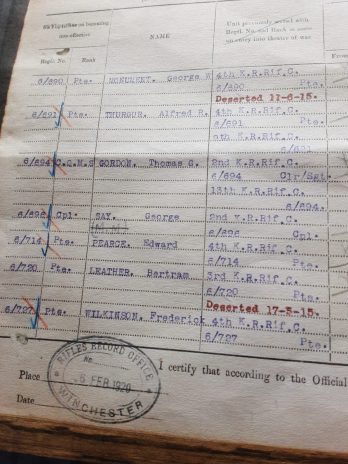 on becoming
non-effective
Regtl. No.
Rank
NAME
Unit previously served with
Regtl. No. and Rank in same
on entry into theatre of war
6/890 Pte. MONUMENT, George W 4th K.R.Rif.C.
6/890 Pte.
Deserted 11-6-15.
6/891 Pte. THURGUR, Alfred R. 4th K.R.Rif.C.
6/891 Pte.
K.R.Rif.C.
6/891
6/894 C.Q.M.S GORDON, Thomas G. 2nd K.R.Rif.C.
6/894 Clr/Sgt
13th K.R.Rif.C.
6/894.
Cpl. SAY, George 2nd K.R.Rif.C.
Cpl.
6/714 Pte. PEARCE, Edward 4th K.R.Rif.C.
6/714 Pte.
6/720 Pte. LEATHER, Bertram 3rd K.R.Rif.C.
6/720 Pte.
Deserted 17-5-15.
6/727 Pte. WILKINSON, Frederick 4th K.R.Rif.C.
6/727 Pte.
I certify that according to the Official
Place
Date
RIFLES RECORD OFFICE
No.
FEB 1920
WINCHESTER